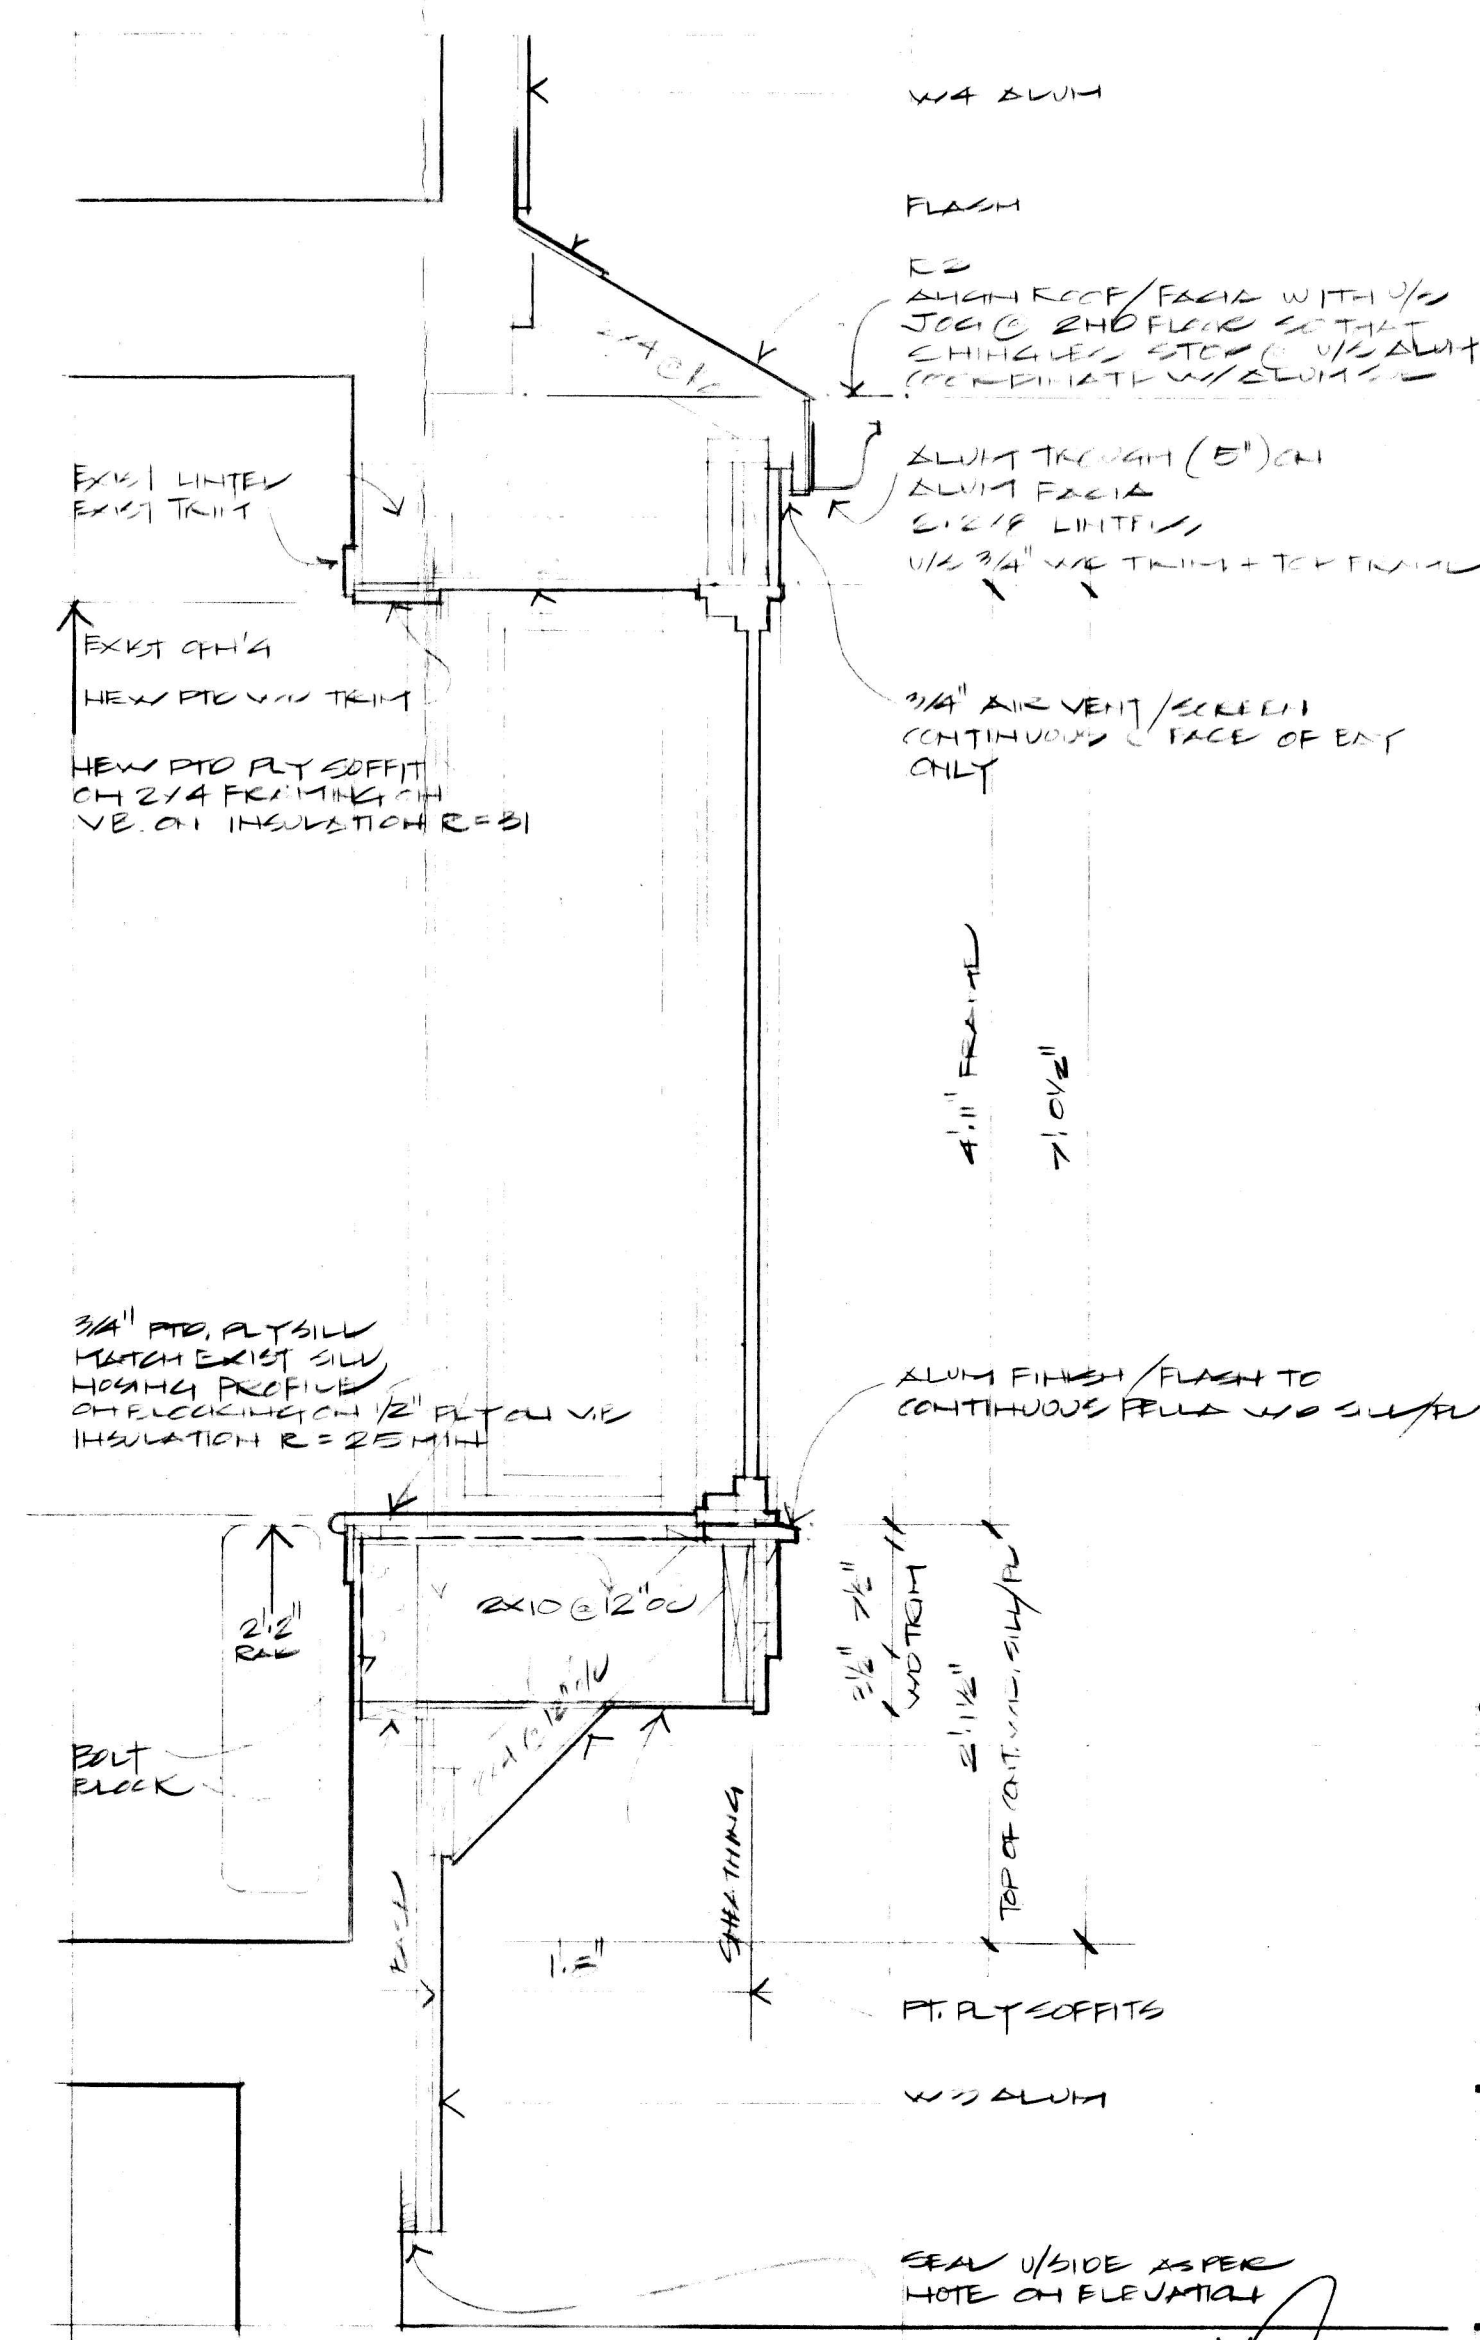 W4 ALUM
FLASH
R2
ALIGN ROOF/FACIA WITH U/S
JOG @ 2ND FLOOR SO THAT
SHINGLES STOP @ U/S ALUM
COORDINATE W/ ALUM
2X4 @
EXIST LINTEL
EXIST TRIM
ALUM TROUGH (5") ON
ALUM FACIA
LINTELS
U/S 3/4" WD TRIM + TOP FRAME
EXIST OPN'G
NEW PTD WD TRIM
NEW PTD PLY SOFFIT
ON 2X4 FRAMING ON
VB. ON INSULATION R=31
3/4" AIR VENT/SCREEN
CONTINUOUS @ FACE OF BAY
ONLY
4'.11" FRAME
7'.0 1/2"
3/4" PTD. PLY SILL
MATCH EXIST SILL
NOSING PROFILE
ON BLOCKING ON 1/2" PLY ON V.B
INSULATION R=25 MIN
ALUM FINISH/FLASH TO
CONTINUOUS PELLA WD SILL/FL
2'.2"
RAD
2X10 @ 12" OC
2X4 @ 12" O/C
3 1/2" 7 1/2"
WD TRIM
2'.1 1/2"
TOP OF CONT. SILL/FL
BOLT
BLOCK
SHEATHING
PT. PLY SOFFITS
ALUM
SEAL U/SIDE AS PER
NOTE ON ELEVATION